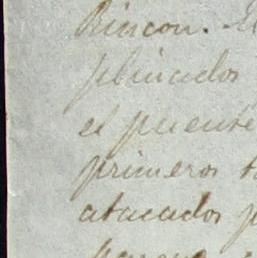 Rincon.
plicados
el puente
primeros
atacados